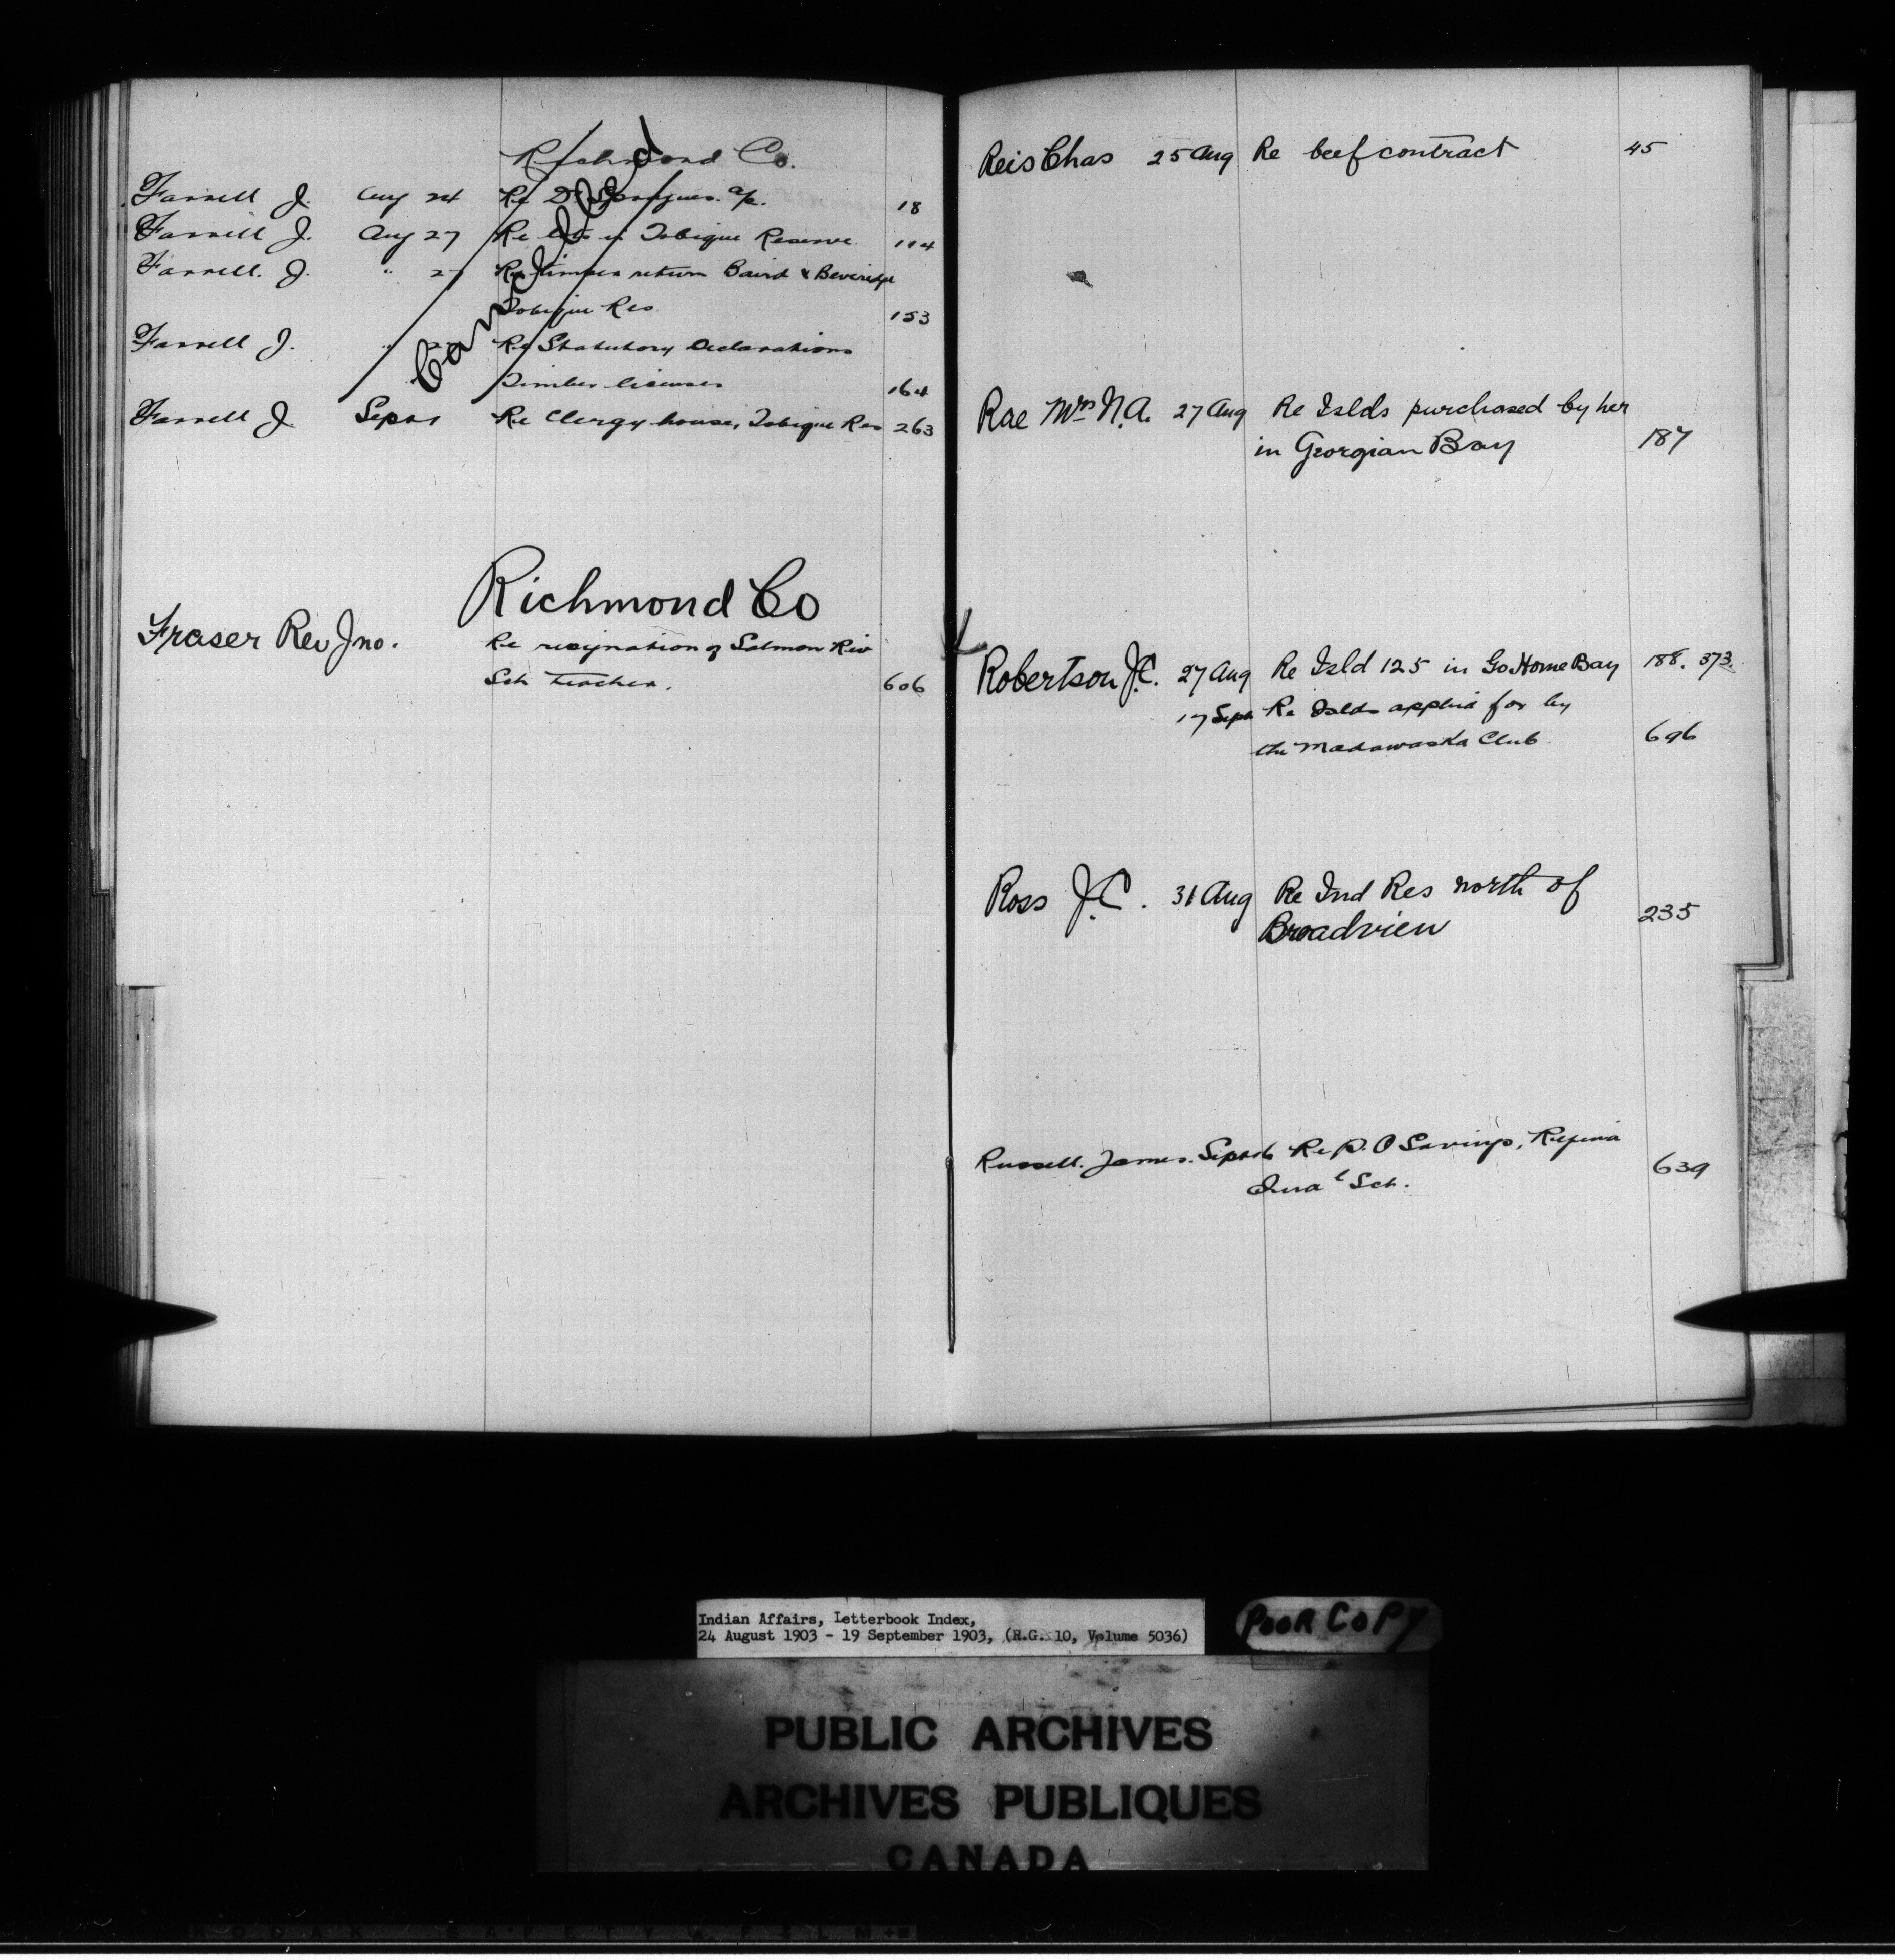 Richmond Co.
Cancelled
Farrell J. Aug 24 Re Dr. a/c. 18
Farrell J. Aug 27 Re lots in Tobique Reserve 114
Farrell. J. " 27 Re timber return Baird & Beveridge
Tobique Res 153
Farrell J. " 27 Re Statutory Declarations
Timber licenses 164
Farrell J. Sept 1 Re Clergy house, Tobique Res 263
Richmond Co
Fraser Rev Jno. Re resignation of Salmon Riv
Sch teacher. 606
Reis Chas 25 Aug Re beef contract 45
Rae Mrs N.A. 27 Aug Re Islds purchased by her
in Georgian Bay 187
Robertson J.C. 27 Aug Re Isld 125 in Go Home Bay 188. 373.
17 Sept Re Islds applied for by
the Madawaska Club 696
Ross J.C. 31 Aug Re Ind Res north of
Broadview 235
Russell. James. Sept Re P.O Savings, Regina
Indl Sch. 639
Indian Affairs, Letterbook Index,
24 August 1903 - 19 September 1903, (R.G. 10, Volume 5036)
POOR COPY
PUBLIC ARCHIVES
ARCHIVES PUBLIQUES
CANADA